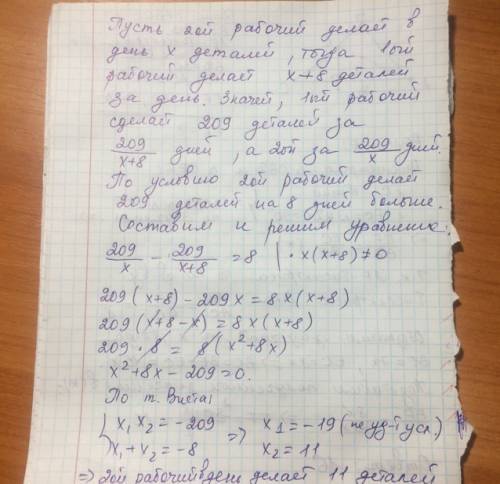 Пусть 2ой рабочий делает в
день x деталей, тогда 1ый
рабочий делает x+8 деталей
за день. Значит, 1ый рабочий
сделает 209 деталей за
209/(x+8) дней, а 2ой за 209/x дней.
По условию 2ой рабочий делает
209 деталей на 8 дней больше.
Составим и решим уравнение:
209/x - 209/(x+8) = 8 | · x(x+8) ≠ 0
209(x+8) - 209x = 8x(x+8)
209(x+8-x) = 8x(x+8)
209 · 8 = 8(x²+8x)
x²+8x-209=0.
По т. Виета:
{ x₁ x₂ = -209 => x₁ = -19 (не уд-т усл.)
x₁ + x₂ = -8 x₂ = 11
=> 2ой рабочий в день делает 11 деталей